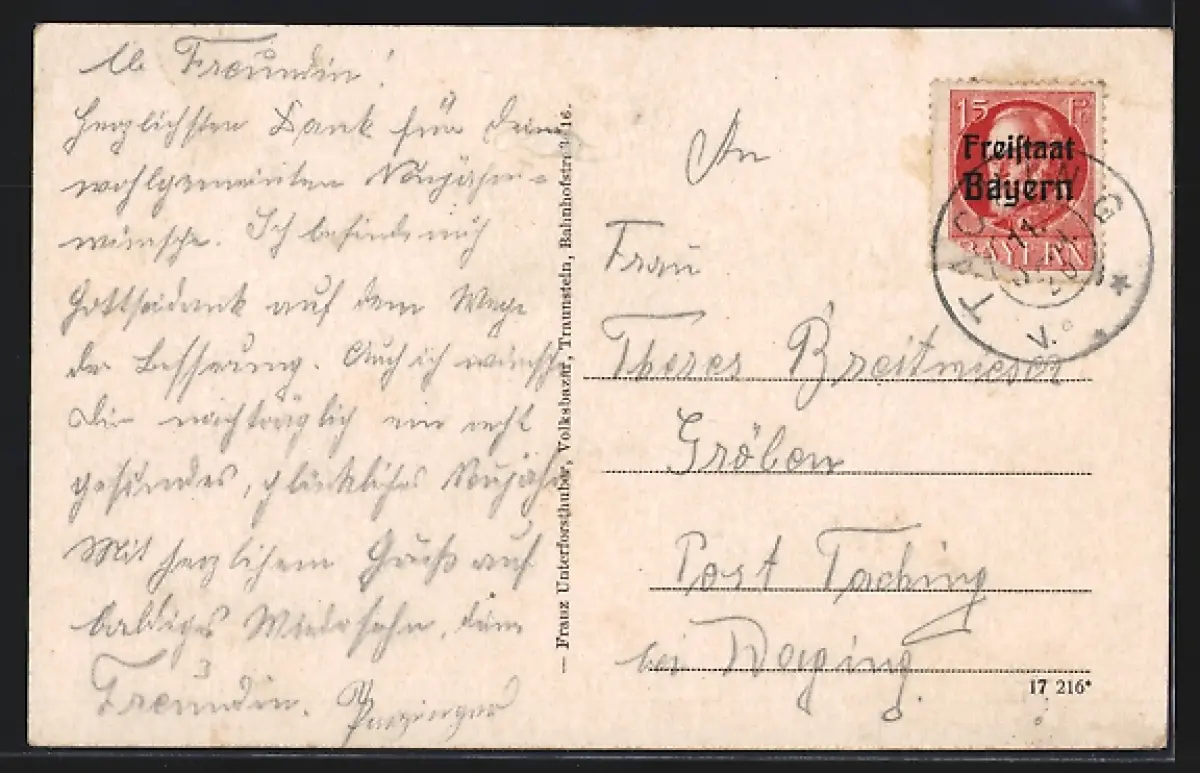 lb Freundin!
herzlichsten Dank für Deine
wohlgemeinten Neujahrs=
wünsche. Ich befinde mich
Gottseidank auf dem Wege
der Besserung. Auch ich wünsche
Dir nachträglich ein recht
gesundes, glückliches Neujahr
Mit herzlichem Gruß auf
baldiges Wiedersehn, Deine
Freundin.
— Franz Unterforsthuber, Volksbazar, Traunstein, Bahnhofstraße 16.
An
Frau
Theres Breitwieser
Gröben
Post Taching
bei Waging.
17 216*
15 Pf
Freiſtaat
Bayern
BAYERN
TACHING